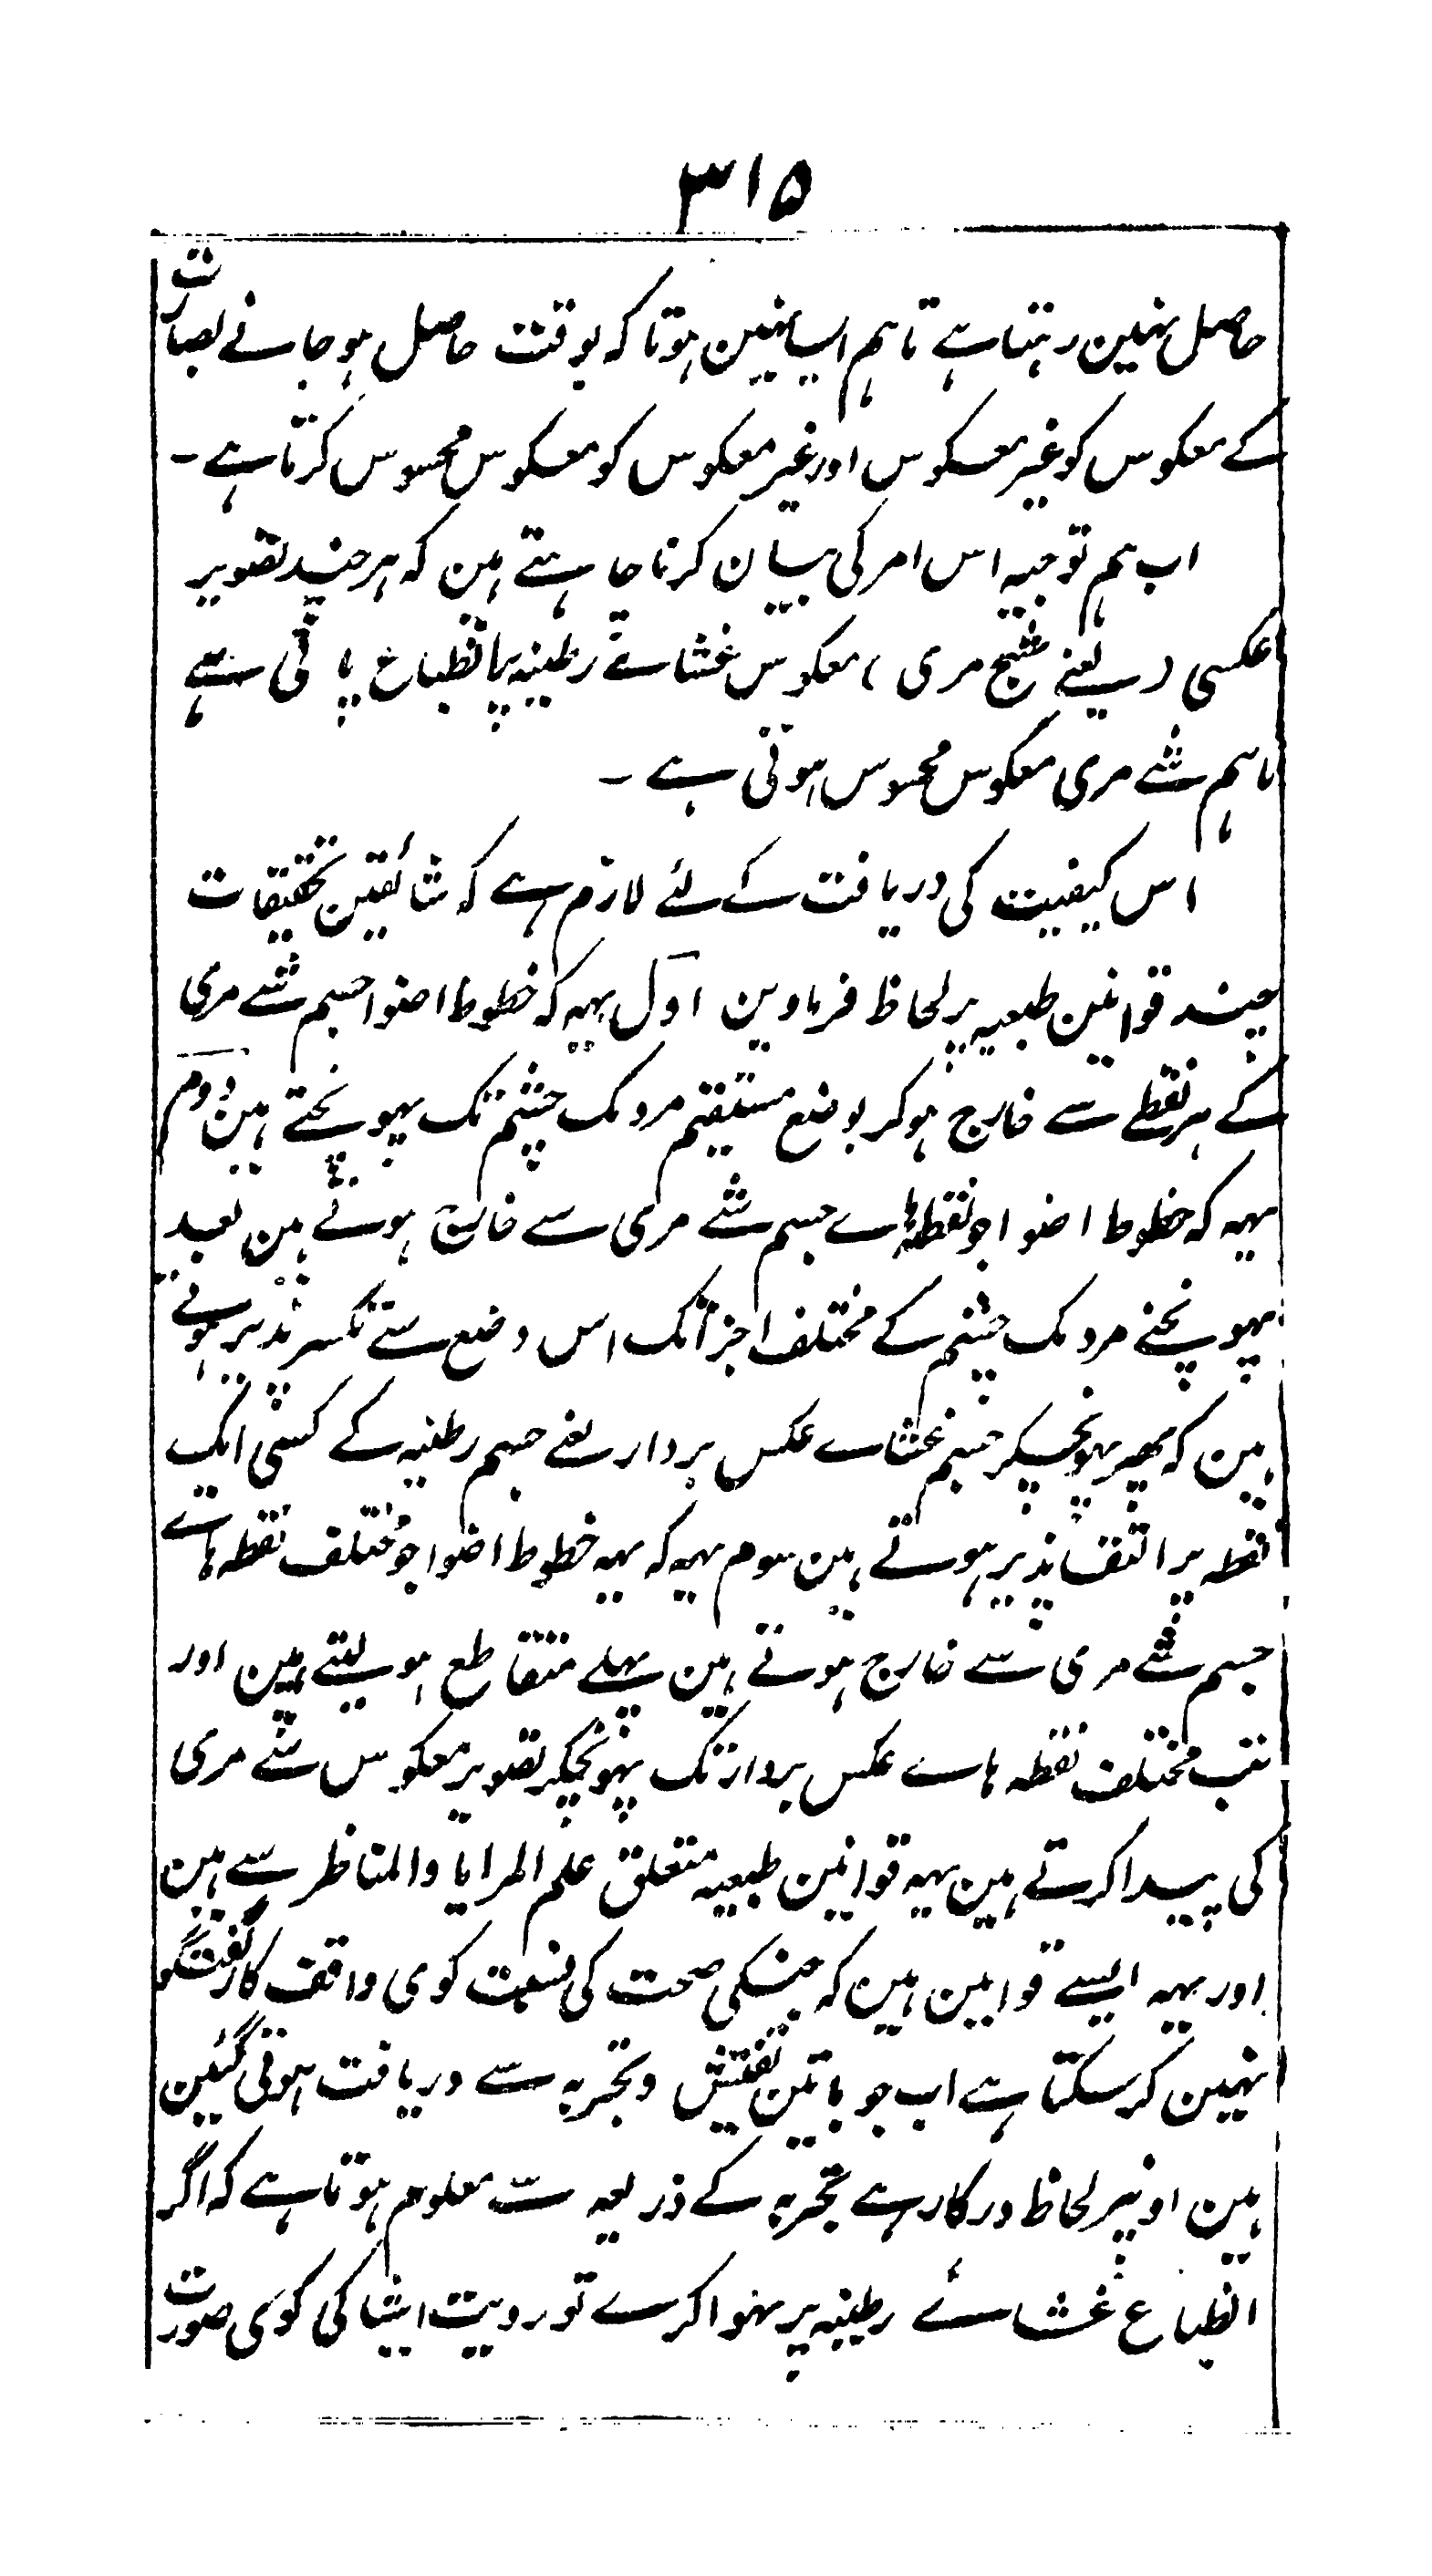 ۳۱۵
حاصل نہین رہتا ہے تاہم ایسا نہین ہوتا کہ بوقت حاصل ہو جانے بصارت
کے معکوس کو غیر معکوس اور غیر معکوس کو معکوس محسوس کرتا ہے ۔
اب ہم توجیہ اس امر کی بیان کرنا چاہتے ہین کہ ہر چند تصویر
عکسی ( یعنے شبح مری ) معکوس غشائے رطینہ پر انطباع پاتی ہے
تاہم شے مری معکوس محسوس ہوتی ہے ۔
اس کیفیت کی دریافت کے لئے لازم ہے کہ شائقین تحقیقات
چند قوانین طبعیہ پر لحاظ فرماوین اول یہہ کہ خطوط اضوا جسم شے مری
کے ہر نقطے سے خارج ہو کر بوضع مستقیم مردمک چشم تک پہونچتے ہین دوم
یہہ کہ خطوط اضوا جو نقطہ ہاے جسم شے مری سے خارج ہوتے ہین بعد
پہونچنے مردمک چشم کے مختلف اجزا تک اس وضع سے تکسر پذیر ہوتے
ہین کہ پھر پہونچکر جسم غشاے عکس بردار یعنے جسم رطنیہ کے کسی ایک
نقطہ پر التقا پذیر ہوتے ہین سوم یہہ کہ یہہ خطوط اضوا جو مختلف نقطہ ہاے
جسم شے مری سے خارج ہوتے ہین پہلے متقاطع ہو لیتے ہین اور
تب مختلف نقطہ ہاے عکس بردار تک پہونچکر تصویر معکوس شے مری
کی پیدا کرتے ہین یہہ قوانین طبعیہ متعلق علم المرایا والمناظر سے ہین
اور یہہ ایسے قوانین ہین کہ جنکی صحت کی نسبت کوی واقف کار گفتگو
نہین کر سکتا ہے اب جو باتین تفتیش و تجربہ سے دریافت ہوتی گئین
ہین اونپر لحاظ درکار ہے تجربہ کے ذریعہ سے معلوم ہوتا ہے کہ اگر
انطباع غشائے رطینہ پر نہوا کرے تو رویت اشیا کی کوی صورت